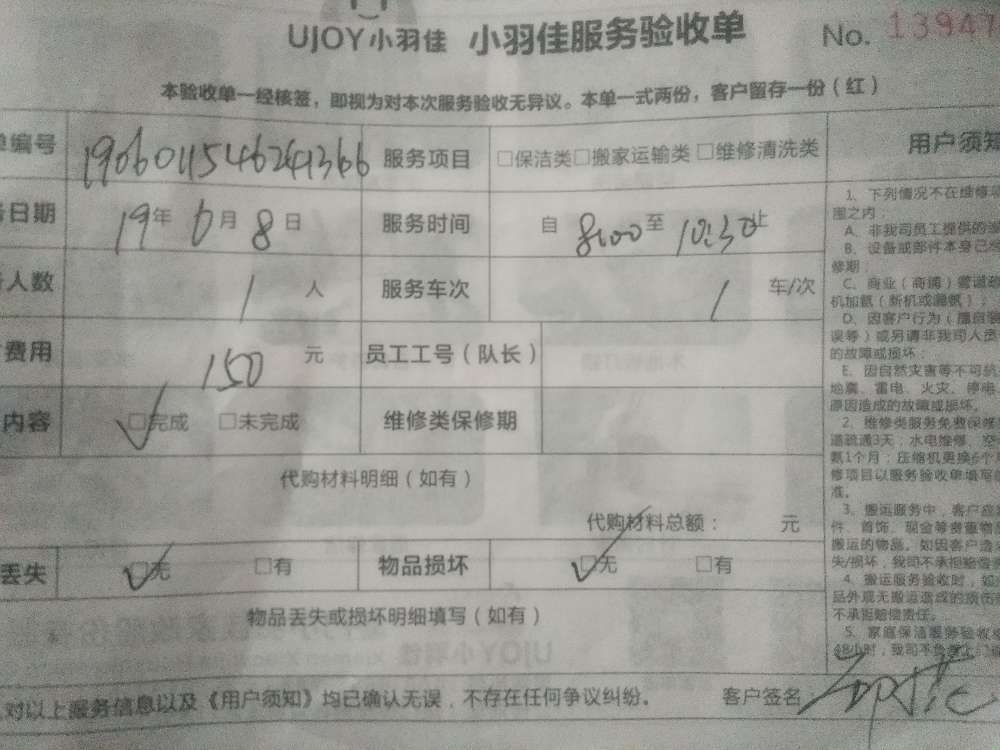 UJOY小羽佳 小羽佳服务验收单 No. 13947
本验收单一经核签，即视为对本次服务验收无异议。本单一式两份，客户留存一份（红）
单编号 1906011546241366 服务项目 □保洁类□搬家运输类 □维修清洗类 用户须知
日期 19年 6月 8日 服务时间 自 8:00 至 10:30止
人数 1 人 服务车次 1 车/次
费用 150 元 员工工号（队长）
内容 □完成 □未完成 维修类保修期
代购材料明细（如有）
代购材料总额： 元
丢失 □无 □有 物品损坏 □无 □有
物品丢失或损坏明细填写（如有）
对以上服务信息以及《用户须知》均已确认无误，不存在任何争议纠纷。 客户签名
1、下列情况不在维修
围之内：
A、非我司员工提供的
B、设备或部件本身已
修期；
C、商业（商铺）管道
机加氨（新机或漏氨）；
D、因客户行为（擅自
误等）或另请非我司人员
的故障或损坏；
E、因自然灾害等不可抗
地震、雷电、火灾、停电
原因造成的故障或损坏。
2、维修类服务免费保修
道疏通3天；水电维修、空
氨1个月；压缩机更换6个
修项目以服务验收单填写
准。
3、搬运服务中，客户应
件、首饰、现金等贵重物
搬运的物品。如因客户
失/损坏，我司不承担赔偿
4、搬运服务验收时，如
品外观无搬运造成的损伤
不承担赔偿责任。
5、家庭保洁服务验收
48小时，我司不负责上门